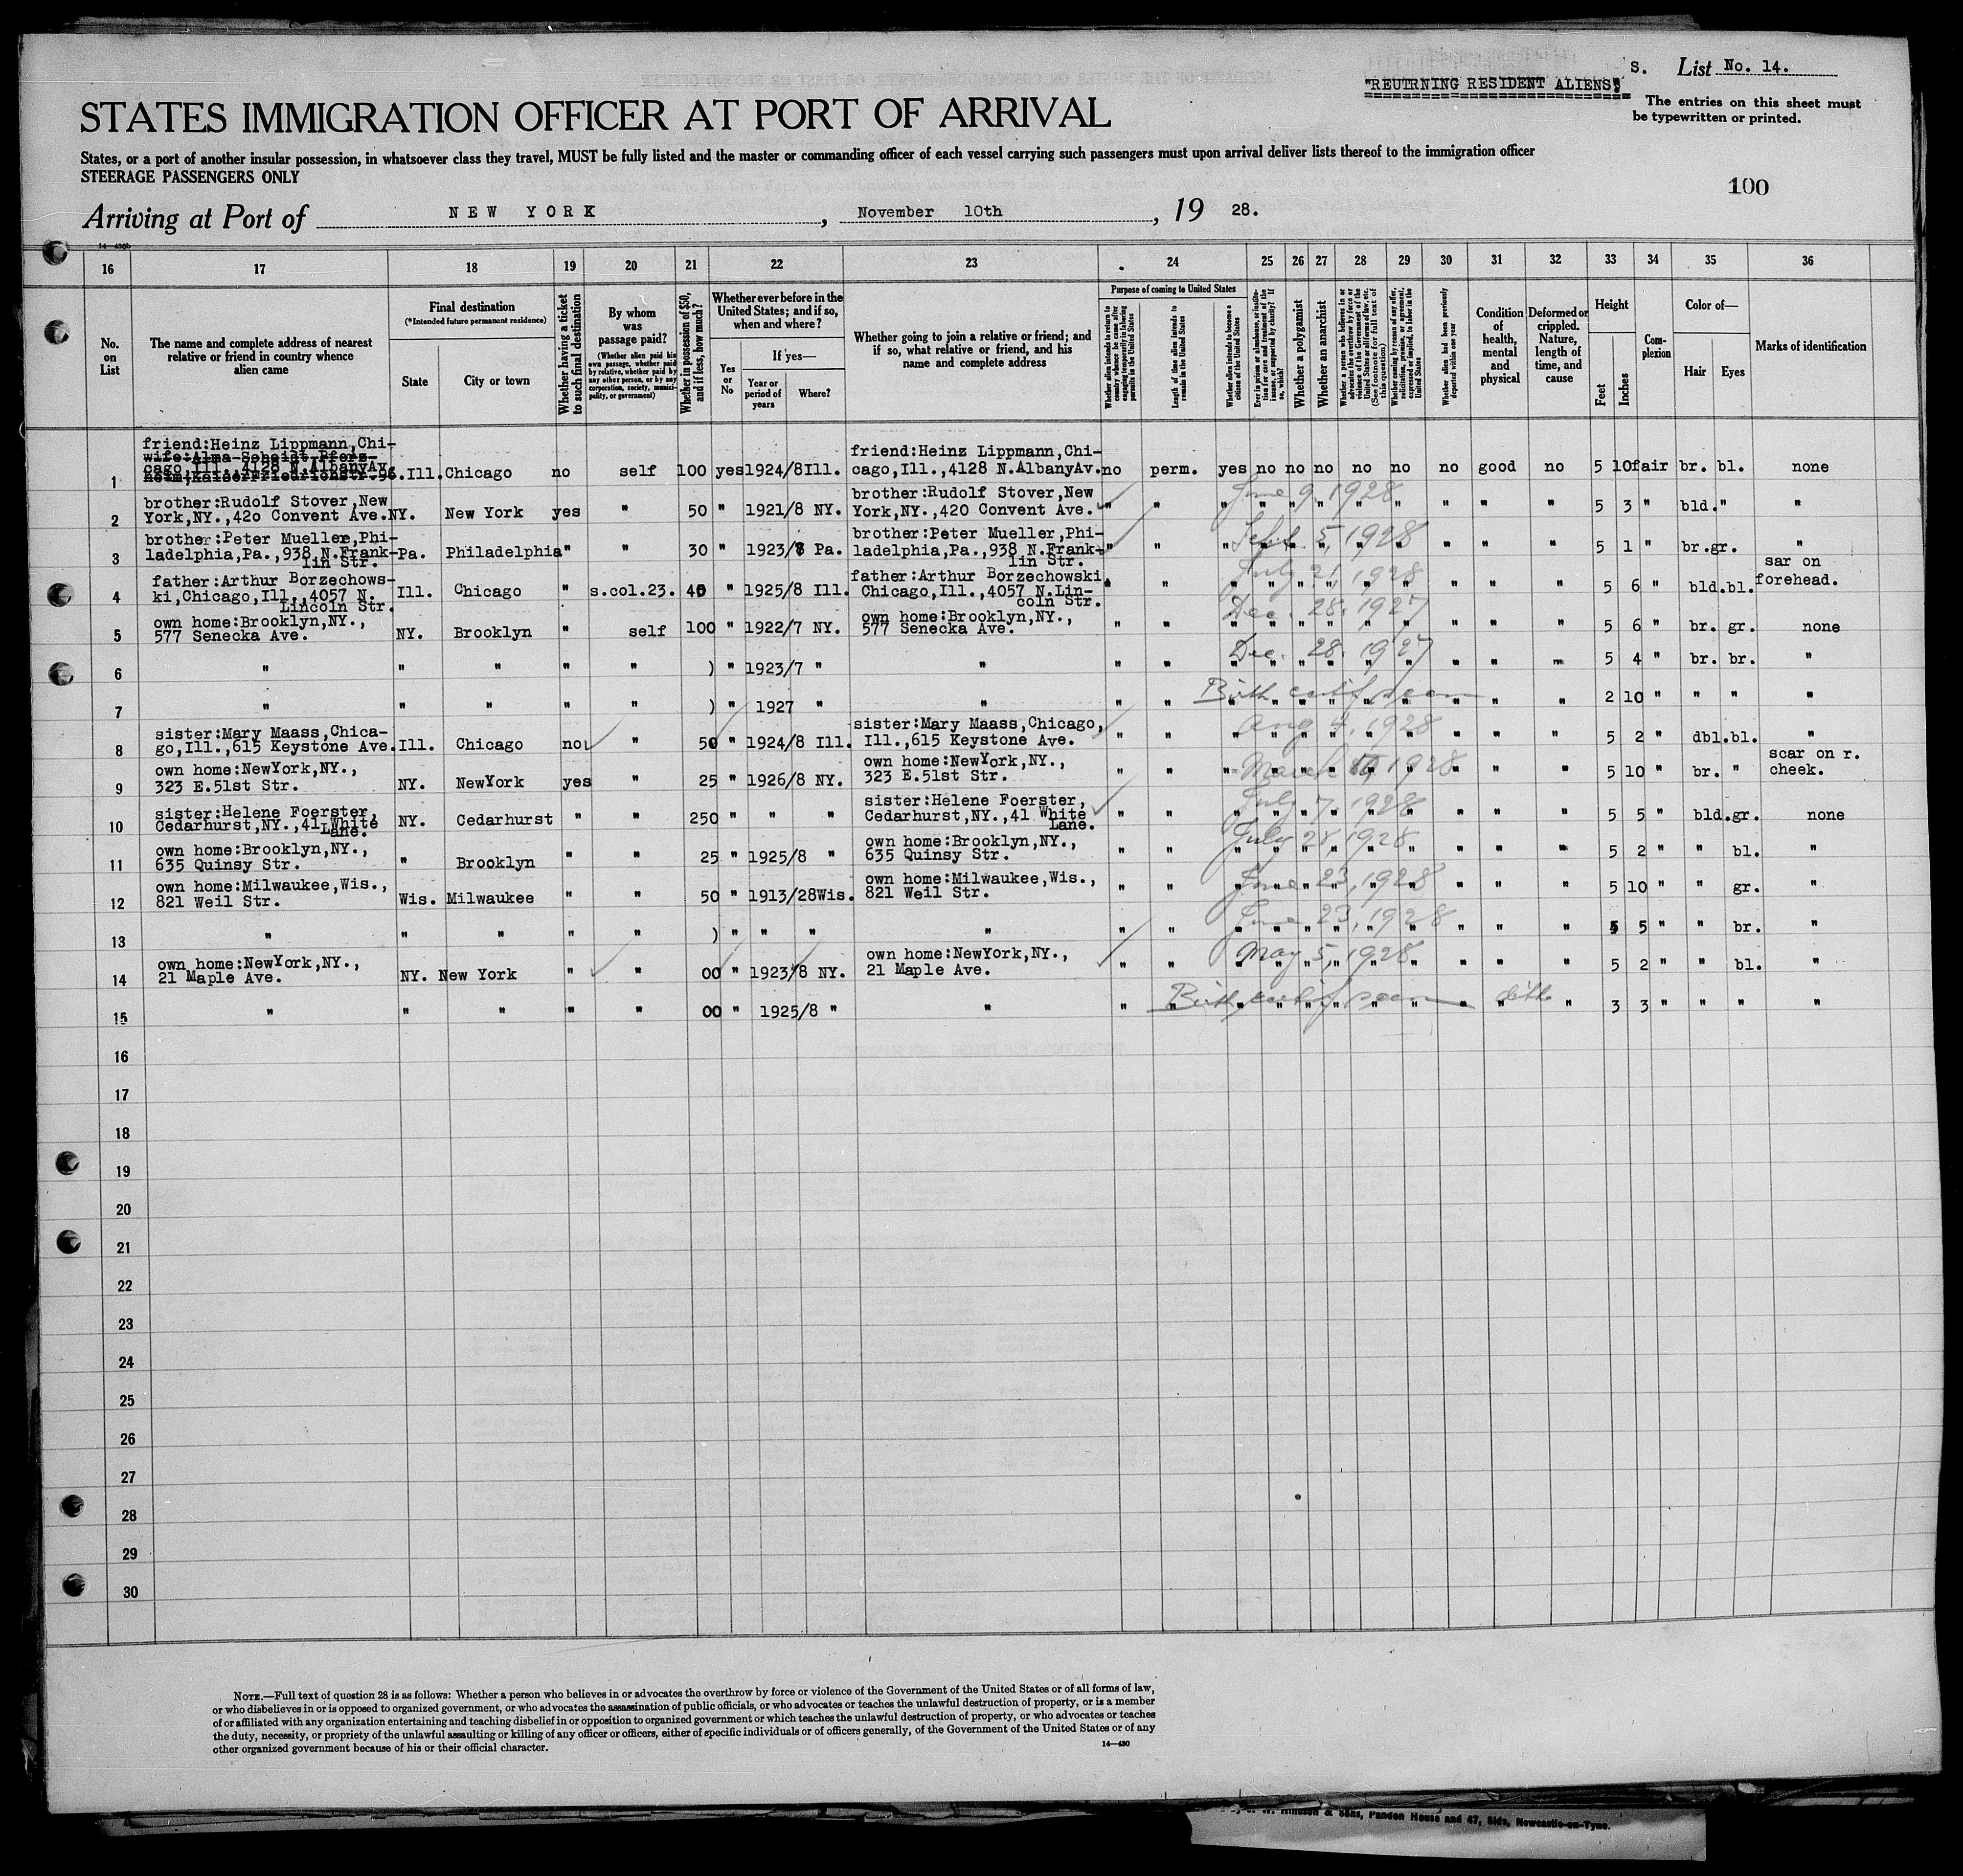 S. List No. 14.
"REUTRNING RESIDENT ALIENS"
The entries on this sheet must
be typewritten or printed.
STATES IMMIGRATION OFFICER AT PORT OF ARRIVAL
States, or a port of another insular possession, in whatsoever class they travel, MUST be fully listed and the master or commanding officer of each vessel carrying such passengers must upon arrival deliver lists thereof to the immigration officer
STEERAGE PASSENGERS ONLY
100
Arriving at Port of NEW YORK, November 10th, 19 28.
14—430b
16 17 18 19 20 21 22 23 24 25 26 27 28 29 30 31 32 33 34 35 36
No. on List
The name and complete address of nearest relative or friend in country whence alien came
Final destination
(*Intended future permanent residence)
State
City or town
Whether having a ticket to such final destination
By whom was passage paid?
(Whether alien paid his own passage, whether paid by relative, whether paid by any other person, or by any corporation, society, municipality, or government)
Whether in possession of $50, and if less, how much?
Whether ever before in the United States; and if so, when and where?
Yes or No
If yes—
Year or period of years
Where?
Whether going to join a relative or friend; and if so, what relative or friend, and his name and complete address
Purpose of coming to United States
Whether alien intends to return to country whence he came after engaging temporarily in laboring pursuits in the United States
Length of time alien intends to remain in the United States
Whether alien intends to become a citizen of the United States
Ever in prison or almshouse, or institution for care and treatment of the insane, or supported by charity? If so, which?
Whether a polygamist
Whether an anarchist
Whether a person who believes in or advocates the overthrow by force or violence of the Government of the United States or all forms of law, etc. (See footnote for full text of this question)
Whether coming by reason of any offer, solicitation, promise, or agreement, expressed or implied, to labor in the United States
Whether alien had been previously deported within one year
Condition of health, mental and physical
Deformed or crippled. Nature, length of time, and cause
Height
Feet
Inches
Complexion
Color of—
Hair
Eyes
Marks of identification
1 friend:Heinz Lippmann,Chi-
wife:Alma Scheidt Pforz-
cago,Ill.,4128 N.AlbanyAv.
heim,KaiserFriedrichstr.96. Ill. Chicago no self 100 yes 1924/8 Ill. friend:Heinz Lippmann,Chi-
cago,Ill.,4128 N.AlbanyAv. no perm. yes no no no no no no good no 5 10 fair br. bl. none
2 brother:Rudolf Stover,New
York,NY.,420 Convent Ave. NY. New York yes " 50 " 1921/8 NY. brother:Rudolf Stover,New
York,NY.,420 Convent Ave. " " " " " " " " " " " 5 3 " bld. " "
June 9, 1928
3 brother:Peter Mueller,Phi-
ladelphia,Pa.,938 N.Frank-
lin Str. Pa. Philadelphia " " 30 " 1923/8 Pa. brother:Peter Mueller,Phi-
ladelphia,Pa.,938 N.Frank-
lin Str. " " " " " " " " " " " 5 1 " br. gr. "
Sept. 5, 1928
4 father:Arthur Borzechows-
ki,Chicago,Ill.,4057 N.
Lincoln Str. Ill. Chicago " s.col.23. 40 " 1925/8 Ill. father:Arthur Borzechowski,
Chicago,Ill.,4057 N.Lin-
coln Str. " " " " " " " " " " " 5 6 " bld. bl. sar on
forehead.
July 21, 1928
5 own home:Brooklyn,NY.,
577 Senecka Ave. NY. Brooklyn " self 100 " 1922/7 NY. own home:Brooklyn,NY.,
577 Senecka Ave. " " " " " " " " " " " 5 6 " br. gr. none
Dec. 28. 1927
6 " " " " " ) " 1923/7 " " " " " " " " " " " " " 5 4 " br. br. "
Dec. 28. 1927
7 " " " " " ) " 1927 " " " " " " " " " " " " " 2 10 " " " "
Birth certif. seen
8 sister:Mary Maass,Chica-
go,Ill.,615 Keystone Ave. Ill. Chicago no " 50 " 1924/8 Ill. sister:Mary Maass,Chicago,
Ill.,615 Keystone Ave. " " " " " " " " " " " 5 2 " dbl. bl. "
Aug 4, 1928
9 own home:NewYork,NY.,
323 E.51st Str. NY. NewYork yes " 25 " 1926/8 NY. own home:NewYork,NY.,
323 E.51st Str. " " " " " " " " " " " 5 10 " br. " scar on r.
cheek.
March 1928
10 sister:Helene Foerster,
Cedarhurst,NY.,41 White
Lane. NY. Cedarhurst " " 250 " " " sister:Helene Foerster,
Cedarhurst,NY.,41 White
Lane. " " " " " " " " " " " 5 5 " bld. gr. none
July 7, 1928
11 own home:Brooklyn,NY.,
635 Quinsy Str. " Brooklyn " " 25 " 1925/8 " own home:Brooklyn,NY.,
635 Quinsy Str. " " " " " " " " " " " 5 2 " " bl. "
July 28, 1928
12 own home:Milwaukee,Wis.,
821 Weil Str. Wis. Milwaukee " " 50 " 1913/28 Wis. own home:Milwaukee,Wis.,
821 Weil Str. " " " " " " " " " " " 5 10 " " gr. "
June 23, 1928
13 " " " " " ) " " " " " " " " " " " " " " " 5 5 " " br. "
June 23, 1928
14 own home:NewYork,NY.,
21 Maple Ave. NY. New York " " 00 " 1923/8 NY. own home:NewYork,NY.,
21 Maple Ave. " " " " " " " " " " " 5 2 " " bl. "
May 5, 1928
15 " " " " " 00 " 1925/8 " " " " " " " " " " " " " 3 3 " " " "
Birth certif seen ditto
16
17
18
19
20
21
22
23
24
25
26
27
28
29
30
NOTE.—Full text of question 28 is as follows: Whether a person who believes in or advocates the overthrow by force or violence of the Government of the United States or of all forms of law,
or who disbelieves in or is opposed to organized government, or who advocates the assassination of public officials, or who advocates or teaches the unlawful destruction of property, or is a member
of or affiliated with any organization entertaining and teaching disbelief in or opposition to organized government or which teaches the unlawful destruction of property, or who advocates or teaches
the duty, necessity, or propriety of the unlawful assaulting or killing of any officer or officers, either of specific individuals or of officers generally, of the Government of the United States or of any
other organized government because of his or their official character.
14—430
& Sons, Pandon House and 47, Side, Newcastle-on-Tyne.